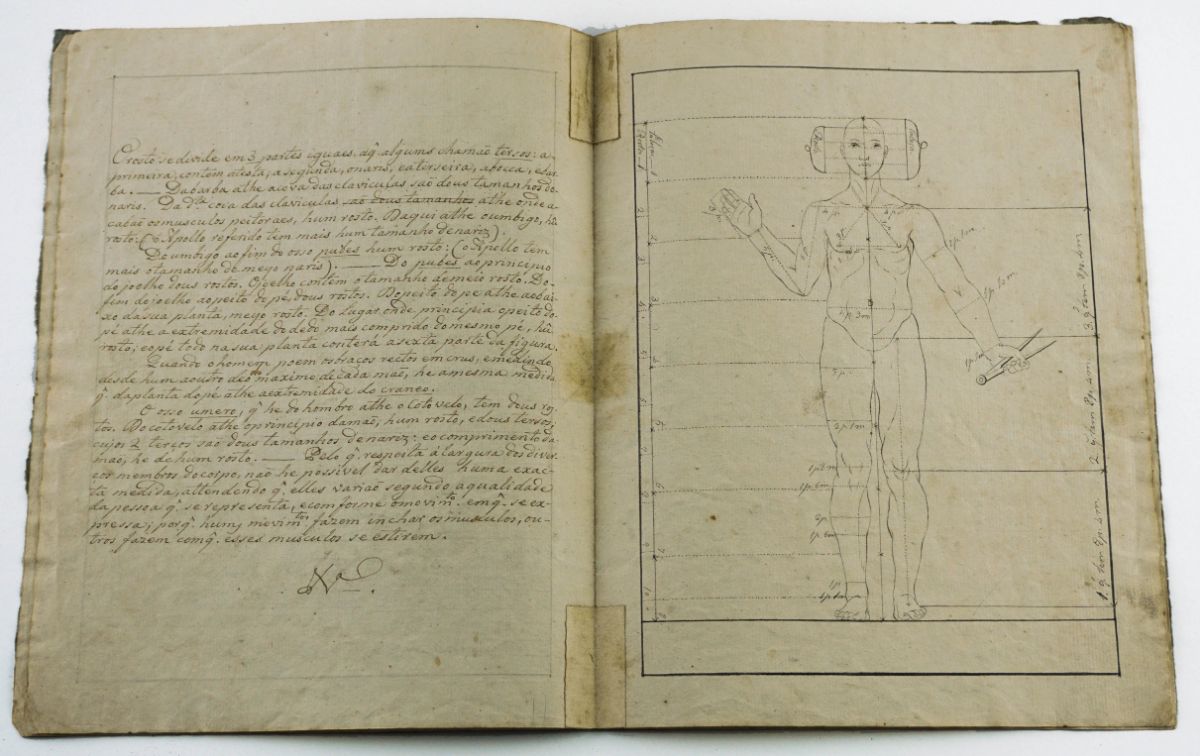 O rosto se divide em 3 partes iguaes, aq̃ alguns chamaõ tersos: a
primeira, contém atésta, a segunda, onaris, eaterseira, abocca, ebar
ba. — Dabarba athe acova das claviculas saõ dous tamanhos do
naris. Da d.ta cova das claviculas saõ dous tamanhos athe onde a
cabaõ osmusculos peitoraes, hum rosto. Daqui athe oumbigo, hũ
rosto: (o Apollo referido tem mais hum tamanho denariz).
Do umbigo aofim do osso pubes hum rosto: (o Apollo tem
mais otamanho de meyo naris). — Do pubes aoprincipio
do joelho dous rostos. Ojoelho contêm otamanho demeio rosto. Do
fim dojoelho aopeito dopé, dous rostos. Dopeito dopé athe aobai
xo dasua planta, meyo rosto. Do lugar onde principia opeito do
pé athe a extremidade dodedo mais comprido domesmo pé, hũ
rosto; eopé todo na sua planta conterá asexta parte da figura.
Quando ohomem poem osbraços rectos emcrus, emedindo
desde hum aoutro dêdo maximo decada maõ, he amesma medida
q̃ daplanta dopé athe aextremidade do craneo.
O osso umero, q̃ he dohombro athe ocotovelo, tem dous ros
tos. Docotovelo athe oprincipio damaõ, hum rosto, edous tersos,
cujos 2 terços saõ dous tamanhos denariz: eocomprimento da
maõ, he de hum rosto. — Pelo q̃ respeita á largura dosdiver
cos membros docorpo, naõ he possivel dar delles huma exac
ta medida, attendendo q̃ elles variaõ segundo aqualidade
da pessoa q̃ se representa, econforme omovim.to emq̃ se ex
pressa; porq̃ huns movim.tos fazem inchar os musculos, ou
tros fazem comq̃ esses musculos se estirem.
1
2
3
4
5
6
7
8
2 p.
2 p.
1 p. 3 m
2 p. 1 m
1 p. 3 m
1 p. 6 m
2 p.
1 p. 6 m
1 p.
1 p. 1 m